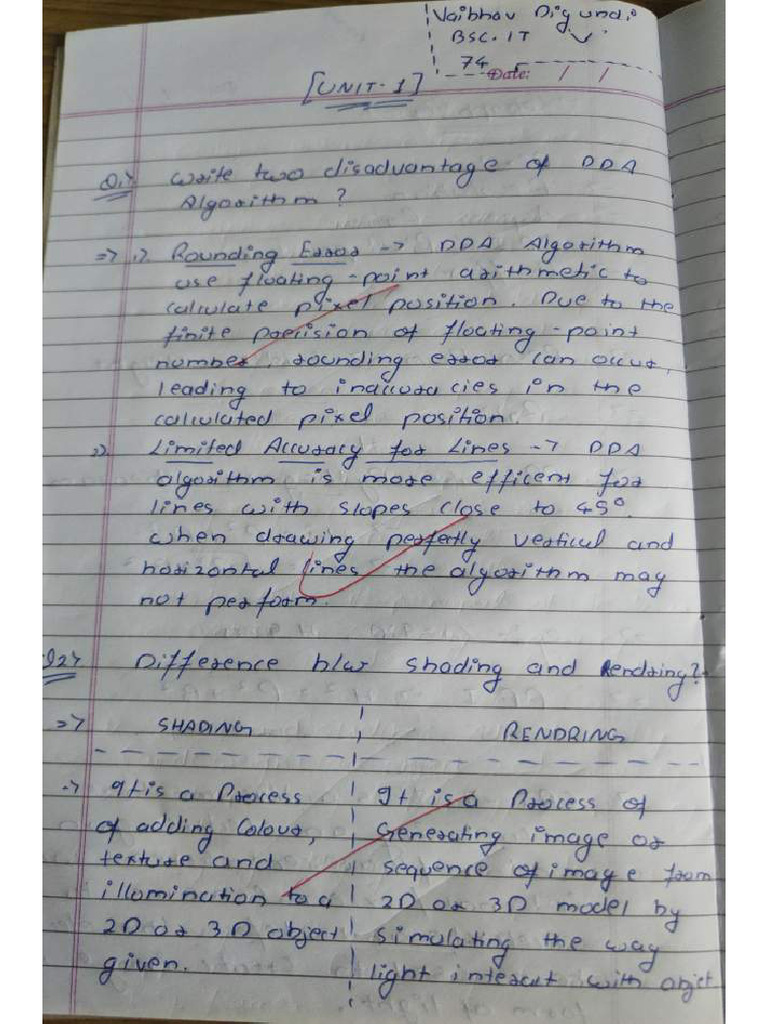 Vaibhav Digundi
BSC.IT
74
Date: / /
[UNIT-1]
Q.1> Write two disadvantage of DDA
Algorithm?
=> 1) Rounding Error -> DDA Algorithm
use floating-point arithmetic to
calculate pixel position. Due to the
finite precision of floating-point
number, rounding error can occur,
leading to inaccuracies in the
calculated pixel position.
2) Limited Accuracy for Lines -> DDA
algorithm is more efficent for
lines with slopes close to 45°.
when drawing perfectly vertical and
horizontal lines the algorithm may
not perform.
Q2> Difference b/w shading and Rendring?
=> SHADING RENDRING
-> It is a Process It is a Process of
of adding Colour, Generating image or
texture and sequence of image from
illumination to a 2D or 3D model by
2D or 3D object simulating the way
given. light interact with objct